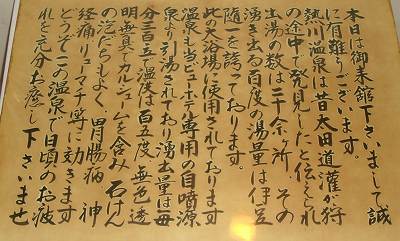 本日は御来館下さいまして誠
に有難うございます。
熱川温泉は昔太田道灌が狩
の途中で発見したと伝えられ
出湯の数は二十余ヶ所、その
湧き出る百度の湯量は伊豆
随一を誇っております。
此の大浴場に使用されております
温泉も当ビューホテル専用の自噴源
泉より引湯されており湧出量は毎
分三百五、温度は百五度、無色透
明無臭でカルシュームを含み、石けん
の泡だちもよく、胃腸病、神
経痛、リューマチ等に効きます
どうぞこの温泉で日頃のお疲
れを充分お癒し下さいませ